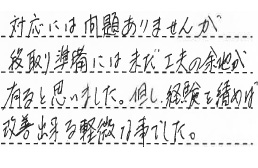 対応には問題ありませんが
段取り準備には まだ工夫の余地が
有ると思いました。但し、経験を積めば
改善出来る軽微な事でした。